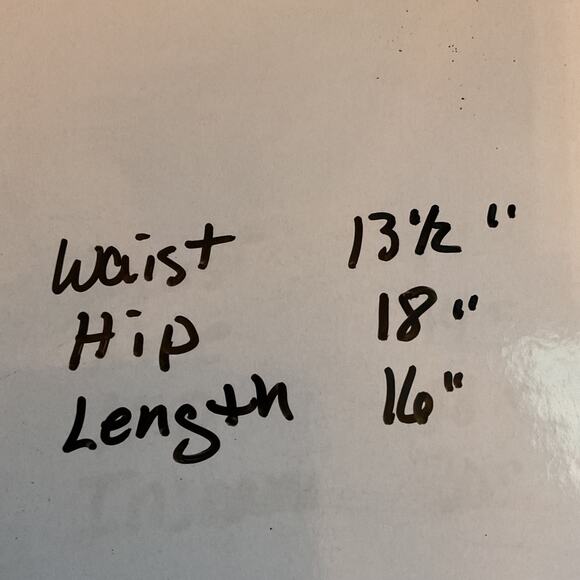 Waist 13 1/2 "
Hip 18 "
Length 16 "